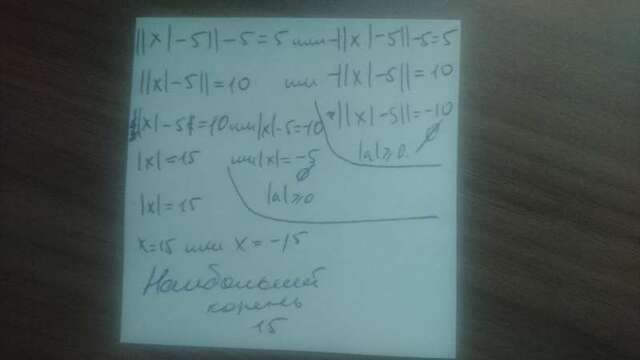 ||x|-5||-5=5 или -||x|-5||-5=5
||x|-5||=10 или -||x|-5||=10
|x|-5=10 или |x|-5=-10 ||x|-5||=-10
|x|=15 или |x|=-5 |a|≥0 ∅
∅
|x|=15 |a|≥0
x=15 или x=-15
Наибольший
корень
15